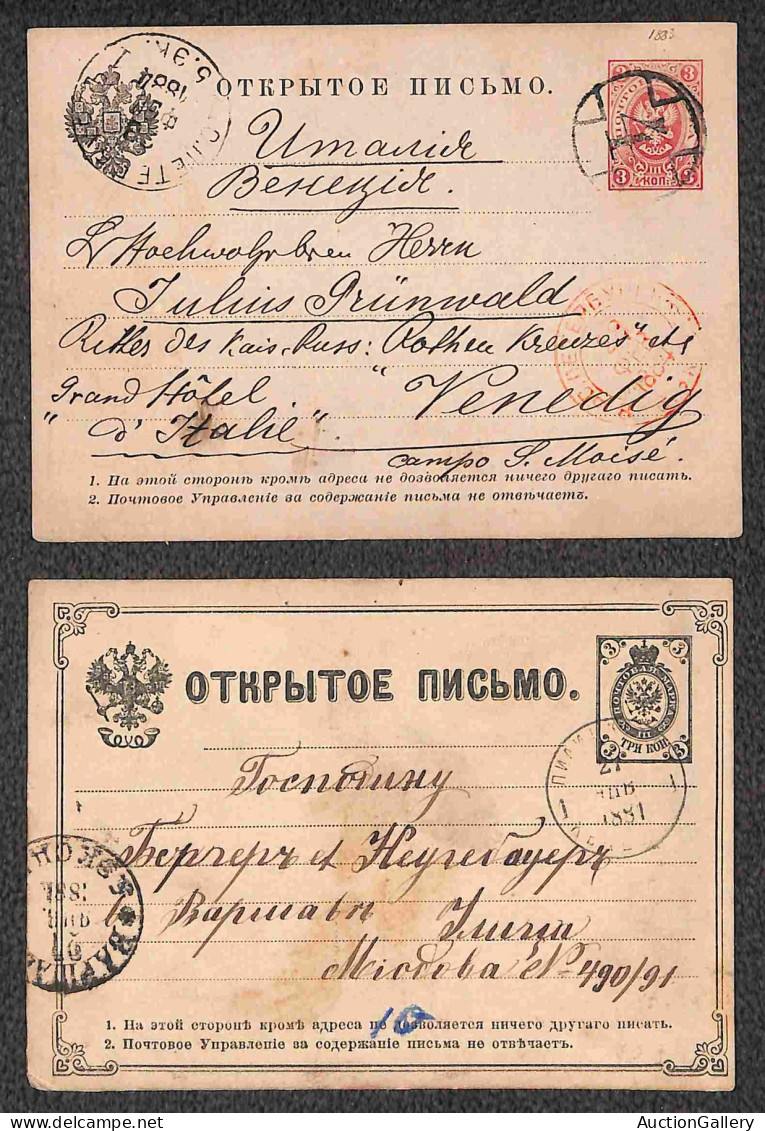 1883
ОТКРЫТОЕ ПИСЬМО.
3 3
3 КОП. 3
1884
Италія
Венеція.
Hochwohrbren Herrn
Julius Grünwald
Ritter des Kais. Russ: Rothen Kreuzes" etc
Grand Hôtel
"d'Italie" Venedig
campo S. Moisé.
1. На этой сторонѣ кромѣ адреса не дозволяется ничего другаго писать.
2. Почтовое Управленіе за содержаніе письма не отвѣчаетъ.
ОТКРЫТОЕ ПИСЬМО.
3 3
3 ТРИ КОП. 3
27
ЯНВ
1881
Господину
Бергеръ et Неугебауеръ
Варшавъ Улица
Міодова № 490/91
ВАРША
1881
10
1. На этой сторонѣ кромѣ адреса не дозволяется ничего другаго писать.
2. Почтовое Управленіе за содержаніе письма не отвѣчаетъ.
AuctionGallery